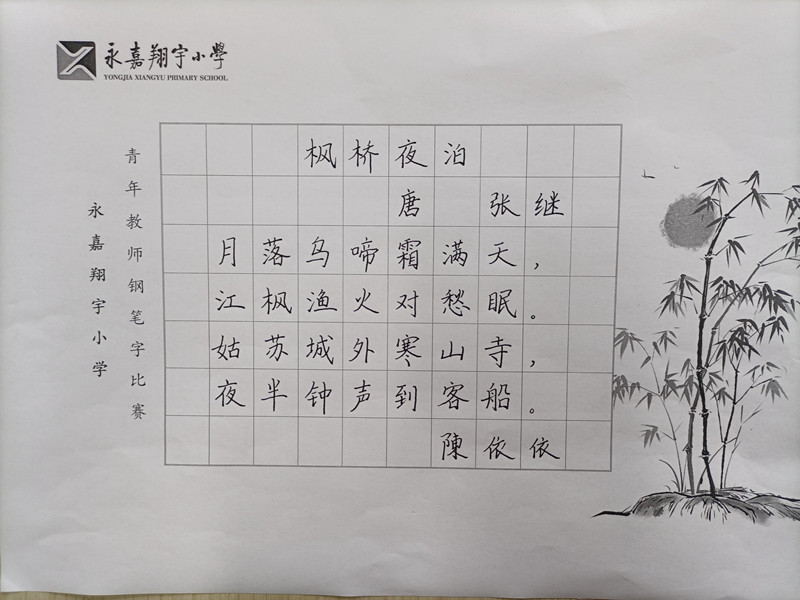 永嘉翔宇小學
YONGJIA XIANGYU PRIMARY SCHOOL
永嘉翔宇小学
青年教师钢笔字比赛
枫桥夜泊
唐 张继
月落乌啼霜满天，
江枫渔火对愁眠。
姑苏城外寒山寺，
夜半钟声到客船。
陳依依